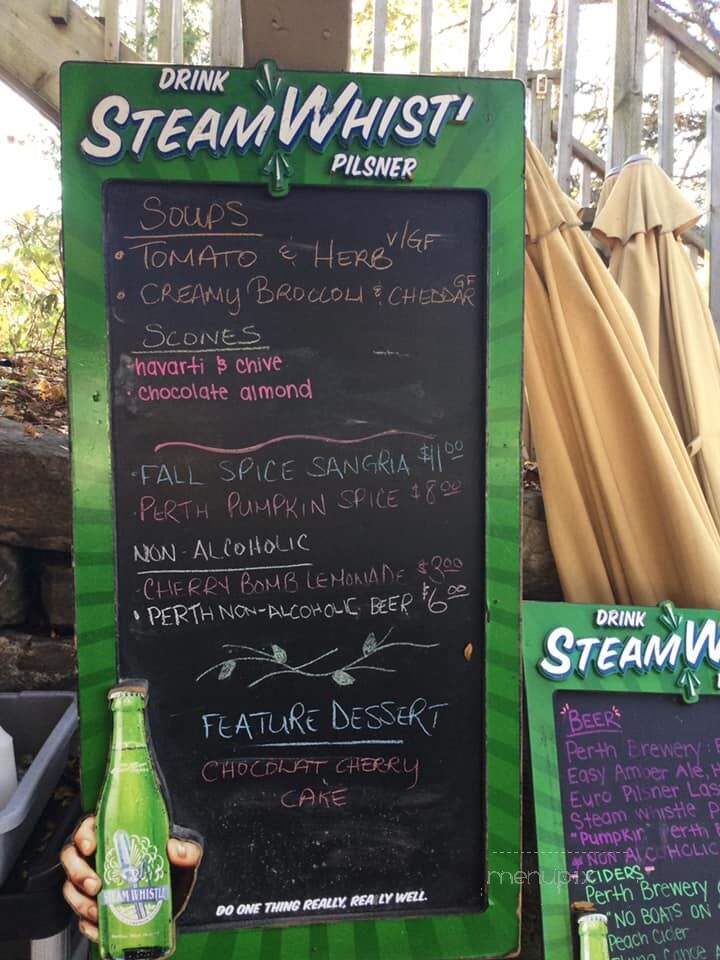 DRINK
STEAMWHIST'
PILSNER
SOUPS
• TOMATO & HERB V/GF
• CREAMY BROCCOLI & CHEDDAR GF
SCONES
• havarti & chive
• chocolate almond
• FALL SPICE SANGRIA $11.00
• PERTH PUMPKIN SPICE $8.00
NON-ALCOHOLIC
• CHERRY BOMB LEMONADE $3.00
• PERTH NON-ALCOHOLIC BEER $6.00
FEATURE DESSERT
CHOCOLAT CHERRY
CAKE
STEAM WHISTLE
DO ONE THING REALLY, REALLY WELL.
DRINK
STEAMW
"BEER"
Perth Brewery:
Easy Amber Ale,
Euro Pilsner Las
Steam Whistle P
"Pumpkin" Perth
NON ALCOHOLIC
CIDERS
Perth Brewery
"NO BOATS ON
Peach Cider
Flying Canoe
menupix